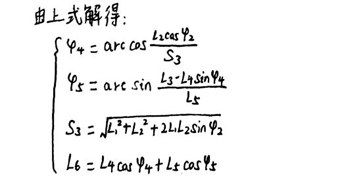 由上式解得:
φ₄ = arc cos L₂cosφ₂ / S₃
φ₅ = arc sin L₃-L₄sinφ₄ / L₅
S₃ = √L₁²+L₂²+2L₁L₂sinφ₂
L₆ = L₄cosφ₄+L₅cosφ₅